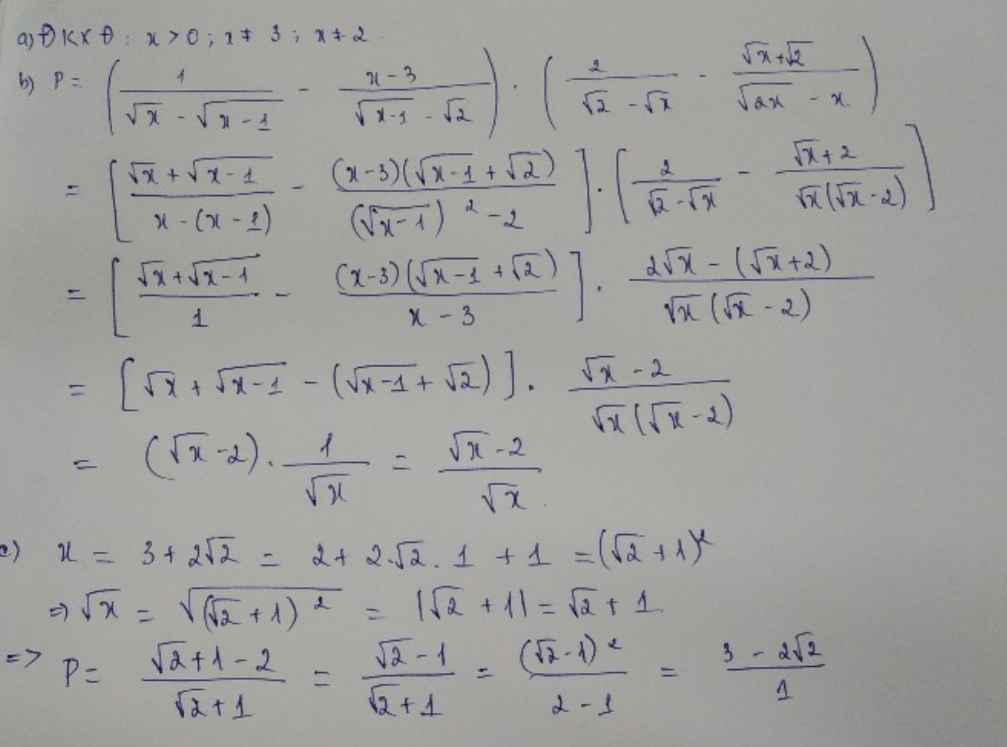 a) ĐKXĐ: x > 0; x ≠ 3; x ≠ 2
b) P = (1/(√x - √(x-1)) - (x-3)/(√(x-1) - √2)) · (2/(√2 - √x) - (√x+√2)/(√(2x) - x))
= [(√x + √(x-1))/(x - (x-1)) - (x-3)(√(x-1) + √2)/((√(x-1))² - 2)] · [2/(√2 - √x) - (√x+2)/(√x(√x-2))]
= [(√x + √(x-1))/1 - (x-3)(√(x-1) + √2)/(x-3)] · (2√x - (√x+2))/(√x(√x-2))
= [√x + √(x-1) - (√(x-1) + √2)] · (√x-2)/(√x(√x-2))
= (√x-2) · 1/√x = (√x-2)/√x.
c) x = 3 + 2√2 = 2 + 2.√2.1 + 1 = (√2+1)²
⇒ √x = √((√2+1)²) = |√2+1| = √2+1
=> P = (√2+1-2)/(√2+1) = (√2-1)/(√2+1) = (√2-1)²/(2-1) = (3-2√2)/1